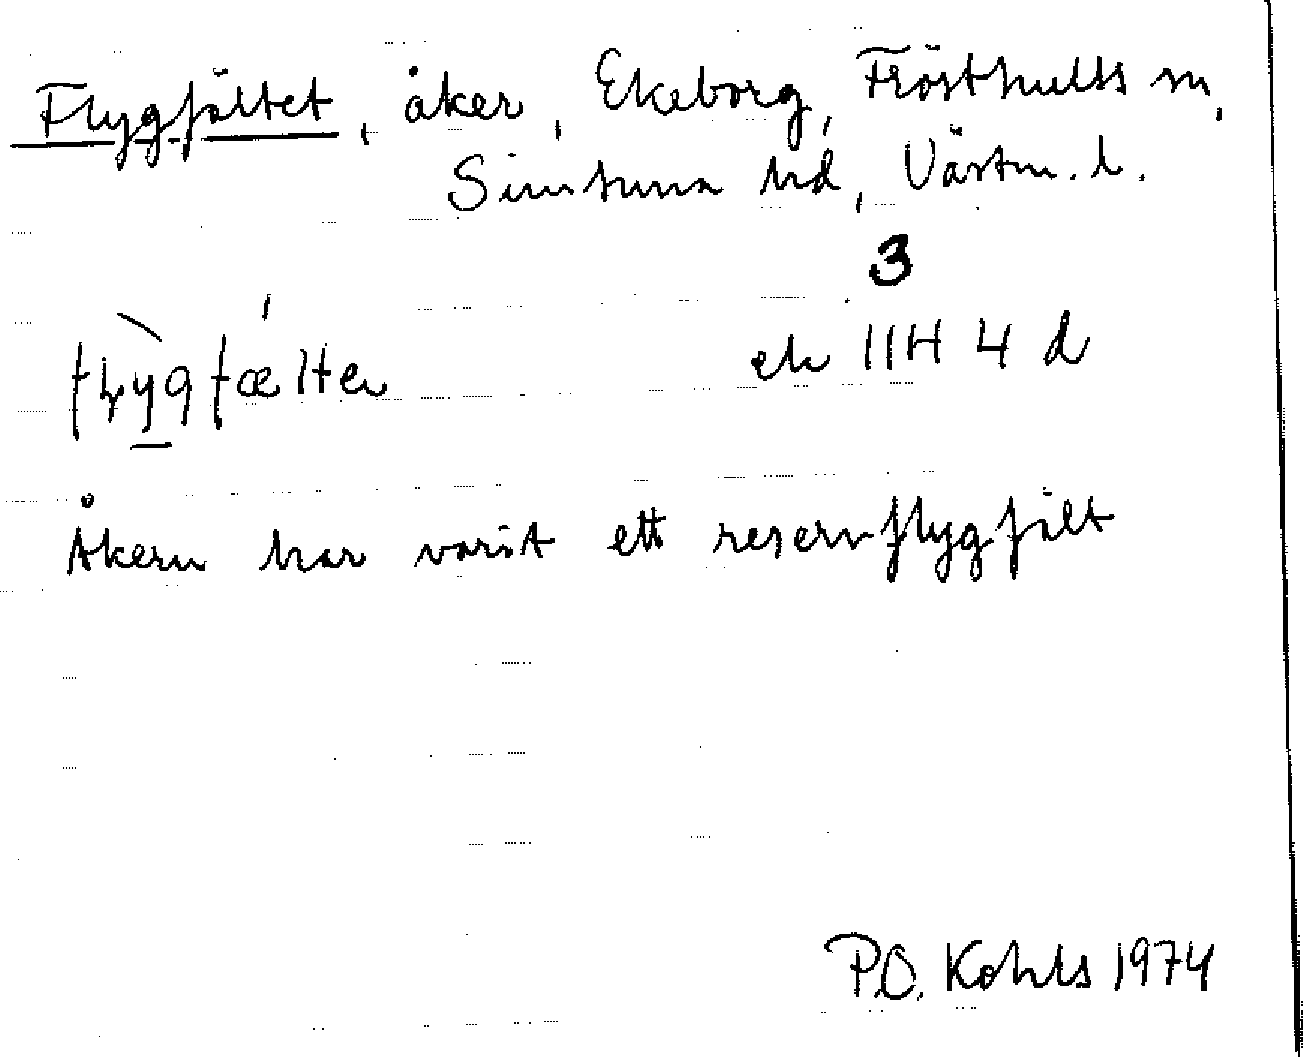 Flygfältet, åker, Ekeborg, Frösthults sn,
Simtuna hd, Västm. l.
3
ek 11H 4 d
Åkern har varit ett reservflygfält
P.O. Kohls 1974